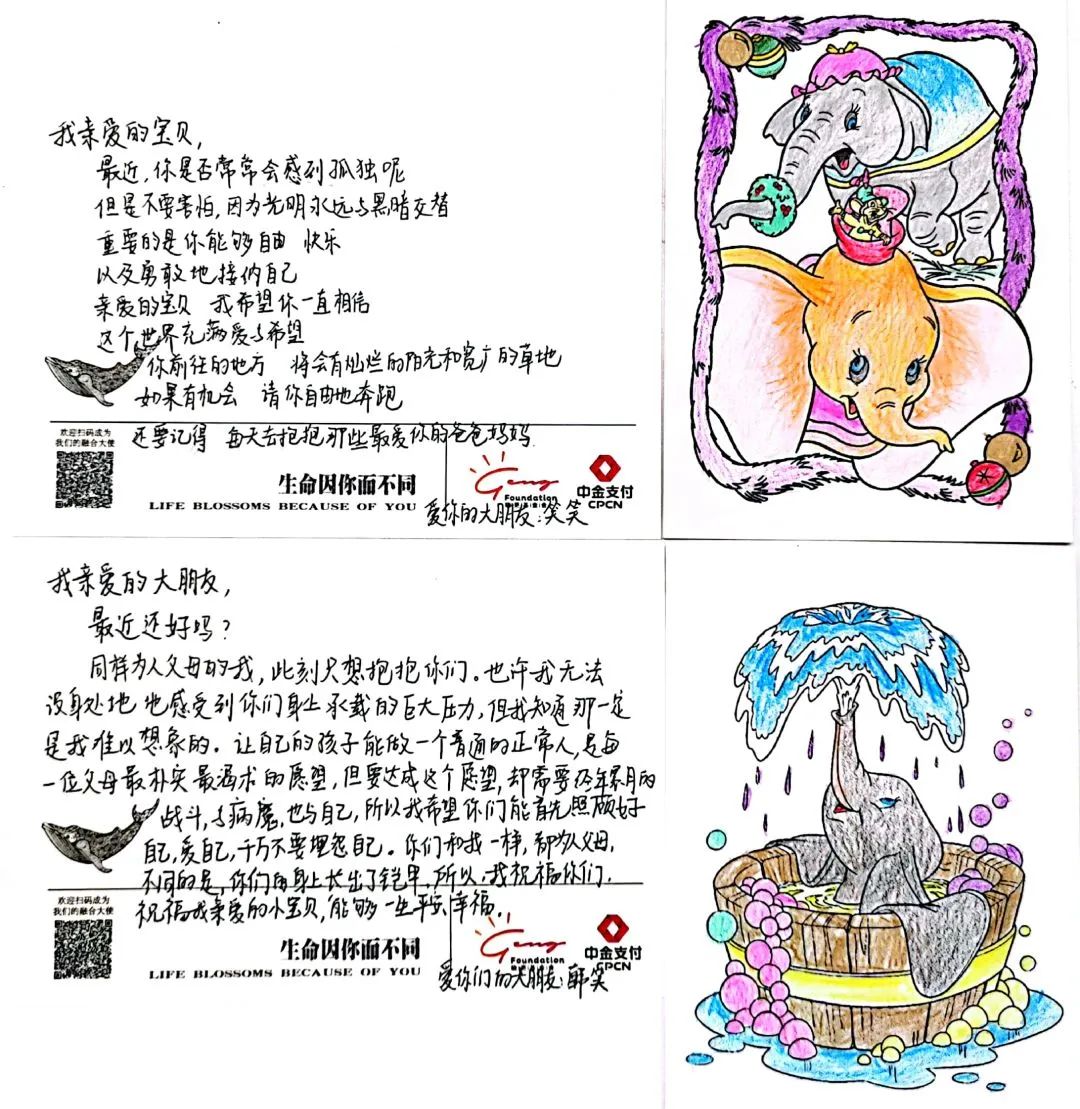 我亲爱的宝贝,
最近,你是否常常会感到孤独呢
但是不要害怕,因为光明永远与黑暗交替
重要的是你能够自由 快乐
以及勇敢地接纳自己
亲爱的宝贝 我希望你一直相信
这个世界充满爱与希望
你前往的地方 将会有灿烂的阳光和宽广的草地
如果有机会 请你自由地奔跑
还要记得 每天去抱抱那些最爱你的爸爸妈妈.
欢迎扫码成为
我们的融合大使
生命因你而不同
LIFE BLOSSOMS BECAUSE OF YOU
Geng
Foundation
中金支付
CPCN
爱你的大朋友:笑笑
我亲爱的大朋友,
最近还好吗?
同样为人父母的我,此刻只想抱抱你们。也许我无法
设身处地地感受到你们身上承载的巨大压力,但我知道那一定
是我难以想象的。让自己的孩子能做一个普通的正常人,是每
一位父母最朴实最渴求的愿望,但要达成这个愿望,却需要经年累月的
战斗,与病魔,也与自己,所以我希望你们能首先照顾好
自己,爱自己,千万不要埋怨自己。你们和我一样,都为父母,
不同的是,你们的身上长出了铠甲,所以,我祝福你们,
祝福我亲爱的小宝贝,能够一生平安,幸福.
欢迎扫码成为
我们的融合大使
生命因你而不同
LIFE BLOSSOMS BECAUSE OF YOU
Geng
Foundation
中金支付
CPCN
爱你们的大朋友:韩笑